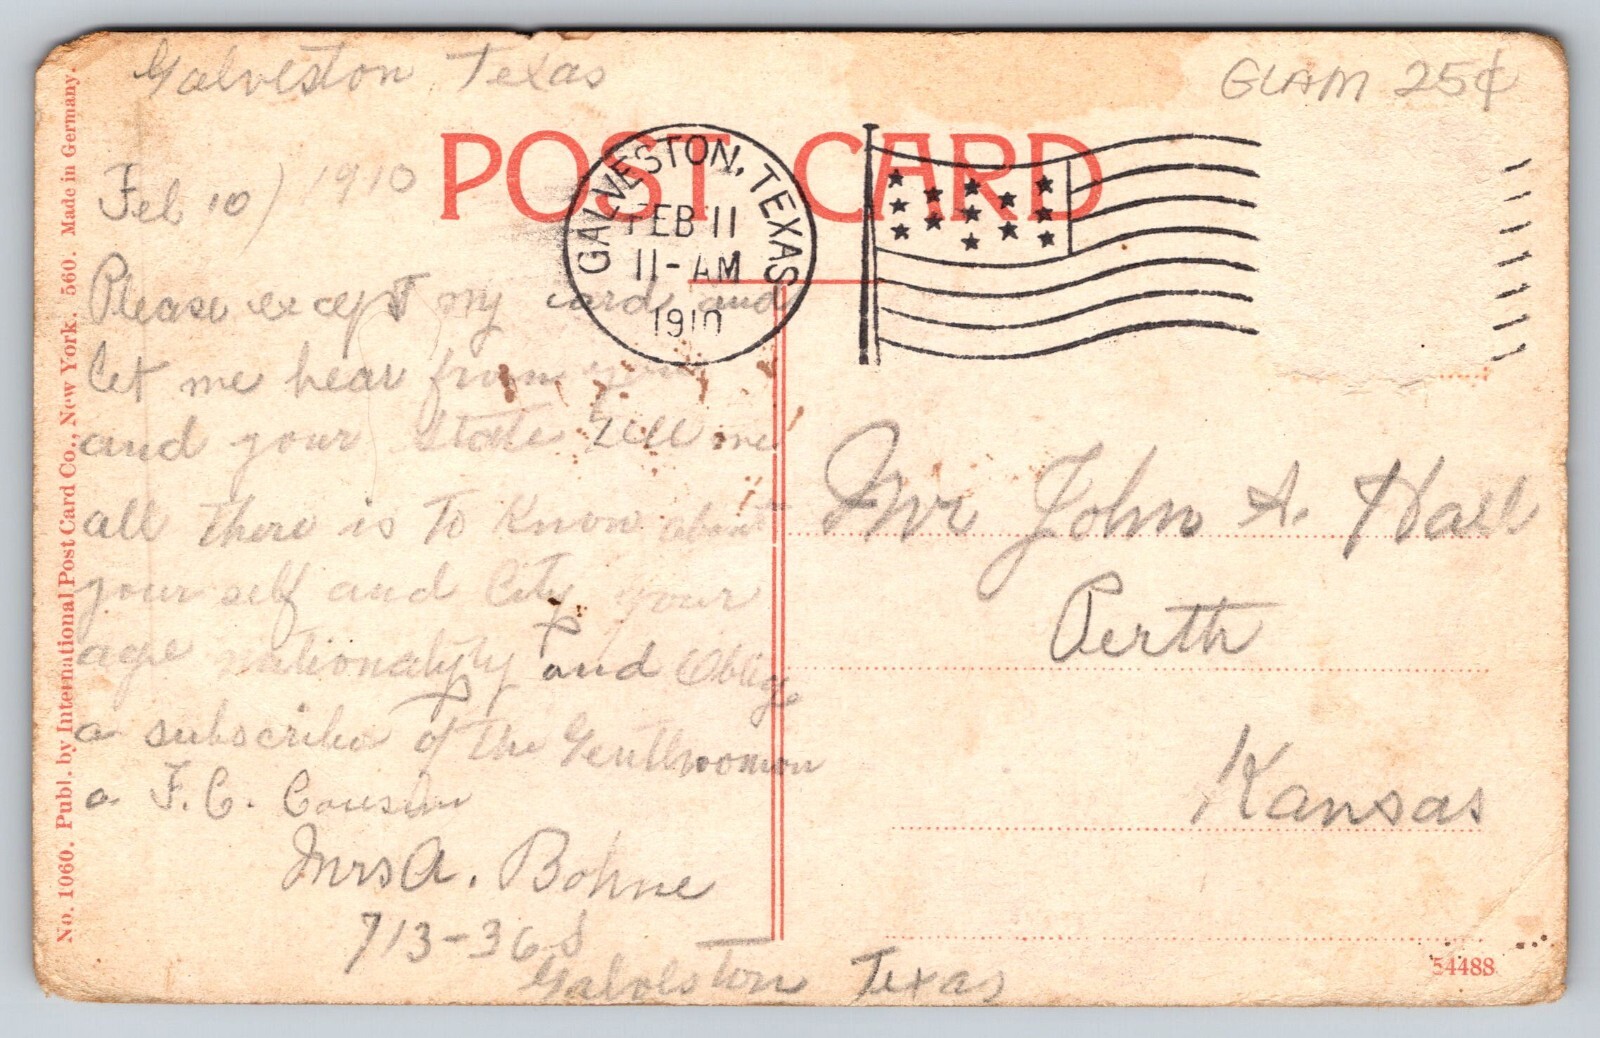 Galveston Texas
GLAM 25¢
POST CARD
GALVESTON, TEXAS
FEB 11
11-AM
1910
Feb 10) 1910
Please except my card and
let me hear from you
and your State Tell me
all there is to Know about
your self and City your
age nationality and Oblige
a subscriber of the Gentlwoman
a F.C. Cousin
Mrs A. Bohne
713-36 S
Galveston Texas
Mr John A. Hall
Perth
Kansas
54488
No. 1060. Publ. by International Post Card Co., New York. 560. Made in Germany.